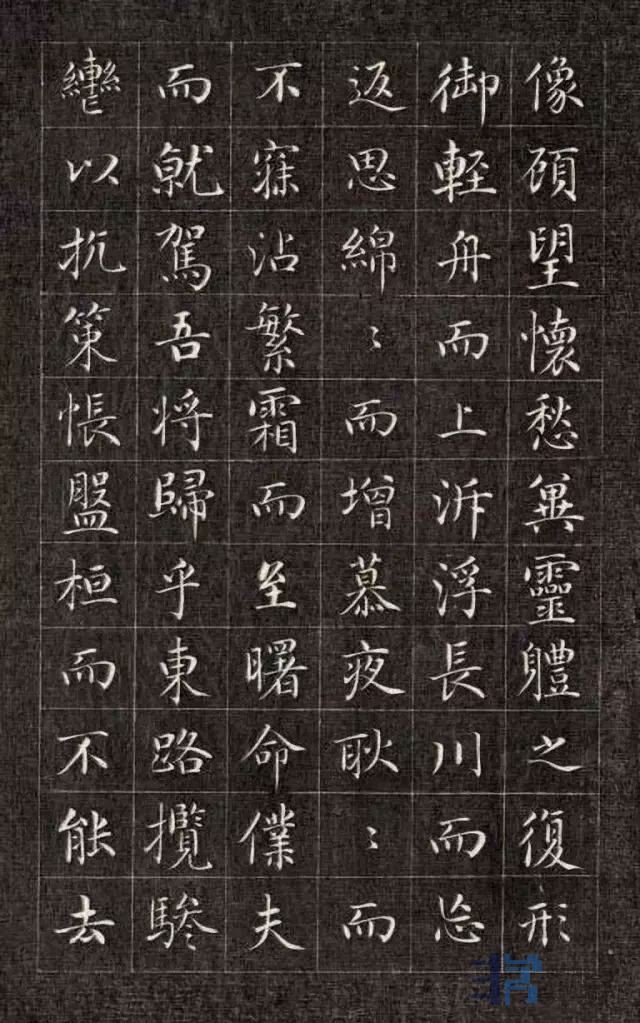 像顧望懷愁兾靈體之復形
御輕舟而上泝浮長川而忘
返思綿〻而增慕夜耿〻而
不寐沾繁霜而至曙命僕夫
而就駕吾将歸乎東路攬騑
轡以抗策悵盤桓而不能去